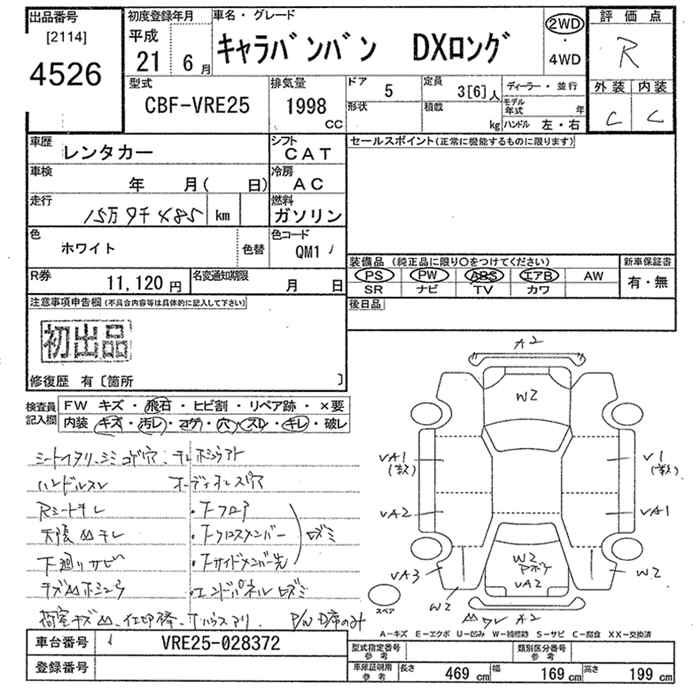 出品番号 [2114] 4526
初度登録年月 平成 21 6 月
車名・グレード キャラバンバン DXロング
2WD ・ 4WD
評価点 R
外装 内装
C C
型式 CBF-VRE25
排気量 1998 CC
ドア 5
形状
定員 3[6]人
積載 kg
ディーラー・並行
モデル年式 年
ハンドル 左・右
車歴 レンタカー
シフト CAT
車検 年 月( 日)
冷房 AC
走行 15万9千485 km
燃料 ガソリン
色 ホワイト 色替
色コード QM1
R券 11,120 円
名変通知期限 月 日
セールスポイント(正常に機能するものに限ります)
装備品 (純正品に限り○をつけてください)
新車保証書
PS PW ABS エアB AW
有・無
SR ナビ TV カワ
後日品
注意事項申告欄 (不具合内容等は具体的に記入して下さい)
初出品
修復歴 有〔箇所 〕
検査員記入欄
FW キズ・飛石・ヒビ割・リペア跡・×要
内装 キズ・汚レ・コゲ・穴・スレ・キレ・破レ
ハンドルスレ
Rシートキレ
・Fフロア
・Fクロスメンバー
下廻リサビ
・Fサイドメンバー先
・エンドパネル
A2
W2
VA1
V1
VA2
VA1
VA3
W2
W2
VA2
W2
A2
スペア
A−キズ E−エクボ U−凹み W−補修跡 S−サビ C−腐食 XX−交換済
車台番号 VRE25-028372
登録番号
型式指定番号 参考
類別区分番号 参考
車庫証明用 参考 長さ 469 cm 幅 169 cm 高さ 199 cm